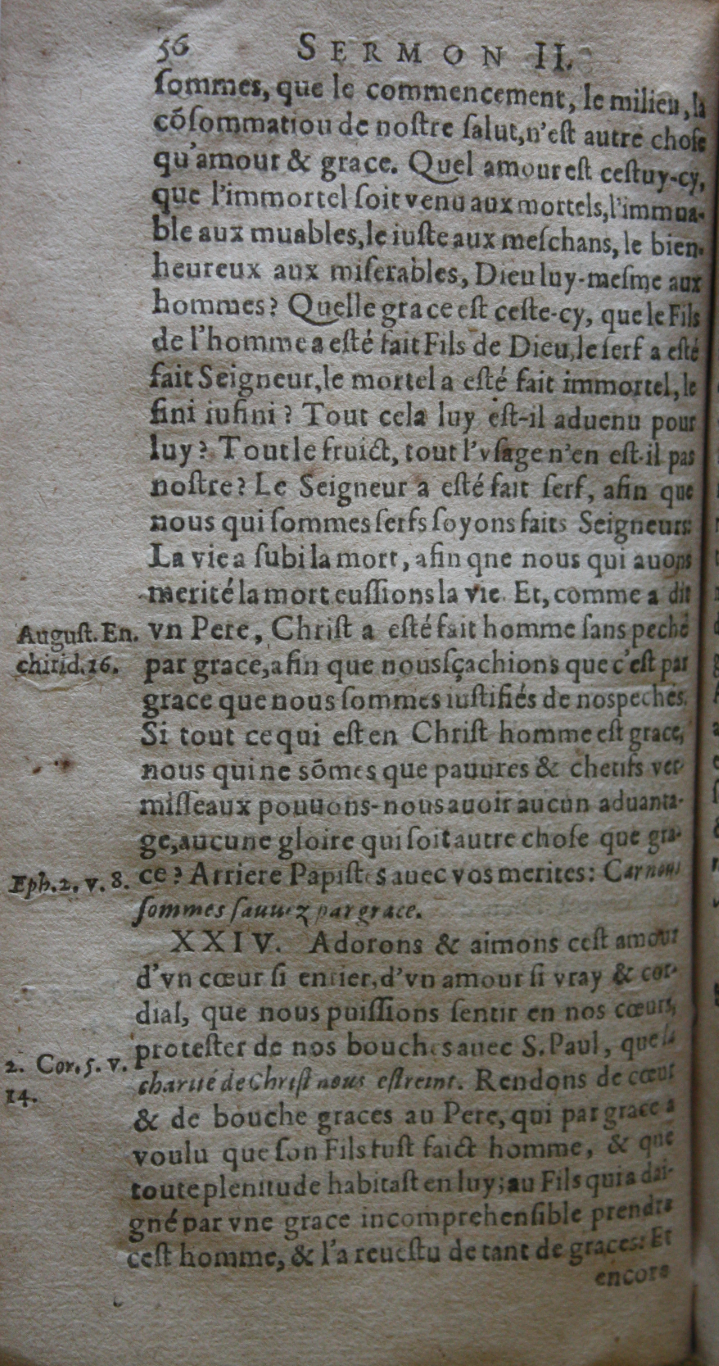 56 SERMON II.
ſommes, que le commencement, le milieu, la
cõſommatiou de noſtre ſalut, n'eſt autre choſe
qu'amour & grace. Quel amour eſt ceſtuy-cy,
que l'immortel ſoit venu aux mortels, l'immua-
ble aux muables, le iuſte aux meſchans, le bien-
heureux aux miſerables, Dieu luy-meſme aux
hommes? Quelle grace eſt ceſte-cy, que le Fils
de l'homme a eſté fait Fils de Dieu, le ſerf a eſté
fait Seigneur, le mortel a eſté fait immortel, le
fini iufini? Tout cela luy eſt-il aduenu pour
luy? Tout le fruict, tout l'vſage n'en eſt-il pas
noſtre? Le Seigneur a eſté fait ſerf, afin que
nous qui ſommes ſerfs ſoyons faits Seigneurs:
La vie a ſubi la mort, afin qne nous qui auons
merité la mort euſſions la vie. Et, comme a dit
Auguſt. En. vn Pere, Chriſt a eſté fait homme ſans peché
chirid. 16. par grace, afin que nous ſçachions que c'eſt par
grace que nous ſommes iuſtifiés de nos pechés.
Si tout ce qui eſt en Chriſt homme eſt grace,
nous qui ne sõmes que pauures & chetifs ver-
miſſeaux pouuons-nous auoir aucun aduanta-
ge, aucune gloire qui ſoit autre choſe que gra-
Eph. 2. v. 8. ce? Arriere Papiſtes auec vos merites: Car nous
ſommes ſauuez par grace.
XXIV. Adorons & aimons ceſt amour
d'vn cœur ſi entier, d'vn amour ſi vray & cor-
dial, que nous puiſſions ſentir en nos cœurs,
2. Cor. 5. v. proteſter de nos bouches auec S. Paul, que la
14. charité de Chriſt nous eſtreint. Rendons de cœur
& de bouche graces au Pere, qui par grace a
voulu que ſon Fils fuſt faict homme, & que
toute plenitude habitaſt en luy; au Fils qui a dai-
gné par vne grace incomprehenſible prendre
ceſt homme, & l'a reueſtu de tant de graces: Et
encore